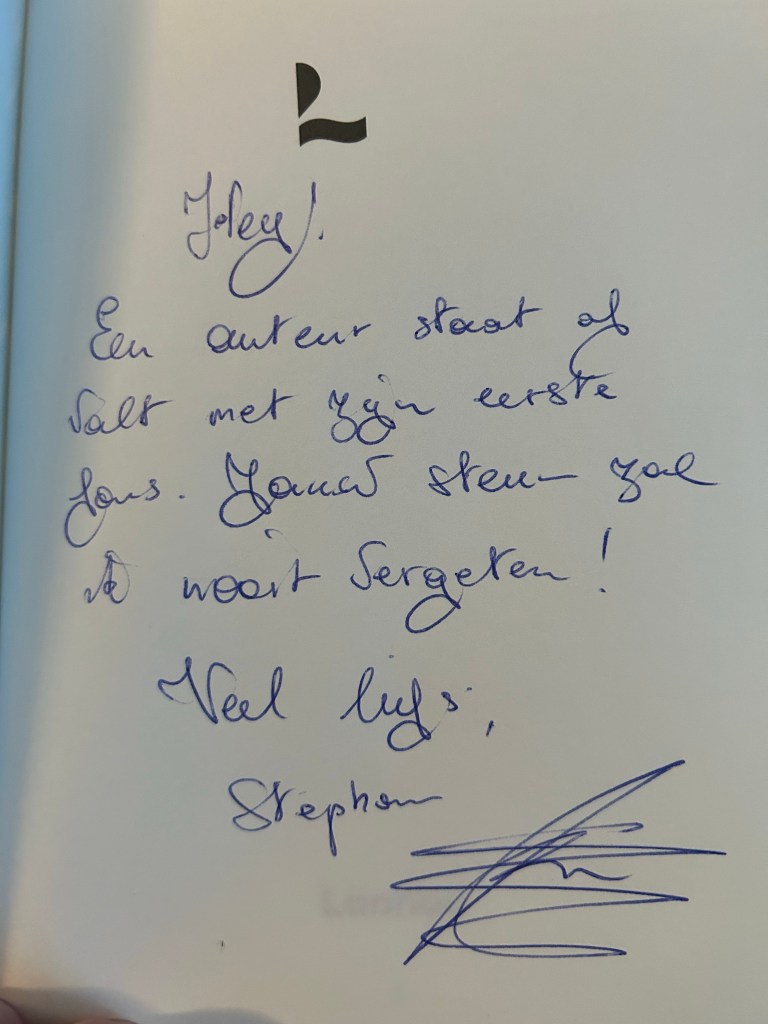 Hey!
Een auteur staat of
valt met zijn eerste
fans. Jouw steun zal
ik nooit vergeten!
Veel liefs,
Stephan